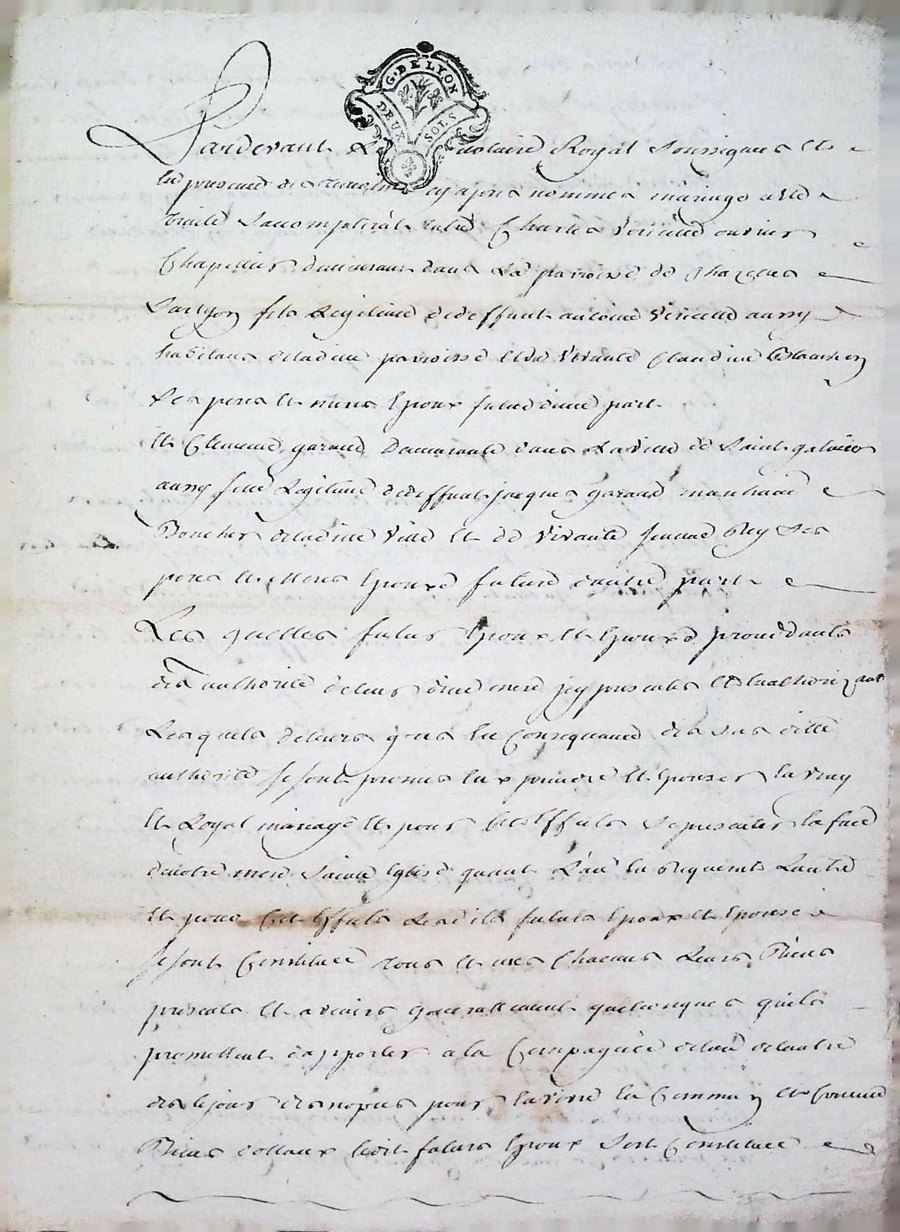 G. DE LYON
DEUX SOLS
Pardevant Le notaire Royal soussigné et
en presence des temoins cy apres nommés mariage a eté
traité Saccomplira entre Charles ouvrier
Chapellier demeurant dans La paroisse de Chazelles
Sur Lyon fils Legitime de deffunt antoine aussy
habitant de ladite paroisse et de vivante Claudine
Ses pere et mere Epoux futur d'une part
Et Clemence garand demeurante dans La ville de Saint galmier
aussy fille Legitime de deffunt jacques garand marchand
Boucher de ladite ville et de vivante jeanne Rey Ses
pere et mere Epouse future d'autre part
Les quelles futur Epoux et Epouse procedants
de authorité de leur dite mere icy presentes et Authorizant
Lesquels de leurs gres En Consequance de Sus ditte
authorité se sont promis Eux prendre et Epouser En vray
Et Loyal mariage Et pour Cet Effet Se presenter En face
de notre mere Sainte Eglise quant L'un En Requerera L'autre
Et pour Cet Effet Lesdits futurs Epoux et Epouse
se sont Constitués tous et uns Chacuns Leurs Biens
presents Et avenirs generallement quelconques quils
promettent d'apporter a la Compagnie de l'un de l'autre
des le jour des nopces pour En vivre En Commun et Comme
Biens dottaux ledit futur Epoux Sest Constitué